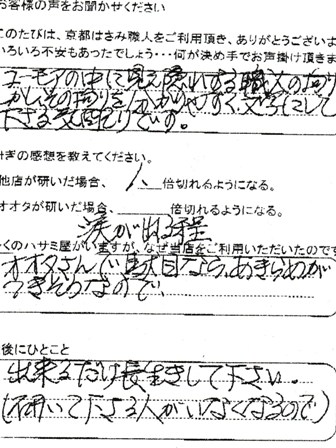 お客様の声をお聞かせください
このたびは、京都はさみ職人をご利用頂き、ありがとうございま
いろいろ不安もあったでしょう・・・何が決め手でお声掛け頂きま
ユーモアの中に見え隠れする職人の拘り
しかしその拘りをわかりやすく、文字にして
下さる気配りです。
研ぎの感想を教えてください。
他店が研いだ場合、 1、 倍切れるようになる。
オオタが研いだ場合、 倍切れるようになる。
涙が出る程
くのハサミ屋がいますが、なぜ当店をご利用いただいたのです
オオタさんで駄目なら、あきらめが
つきそうなので、
後にひとこと
出来るだけ長生きして下さい。
(研いで下さる人がいなくなるので)